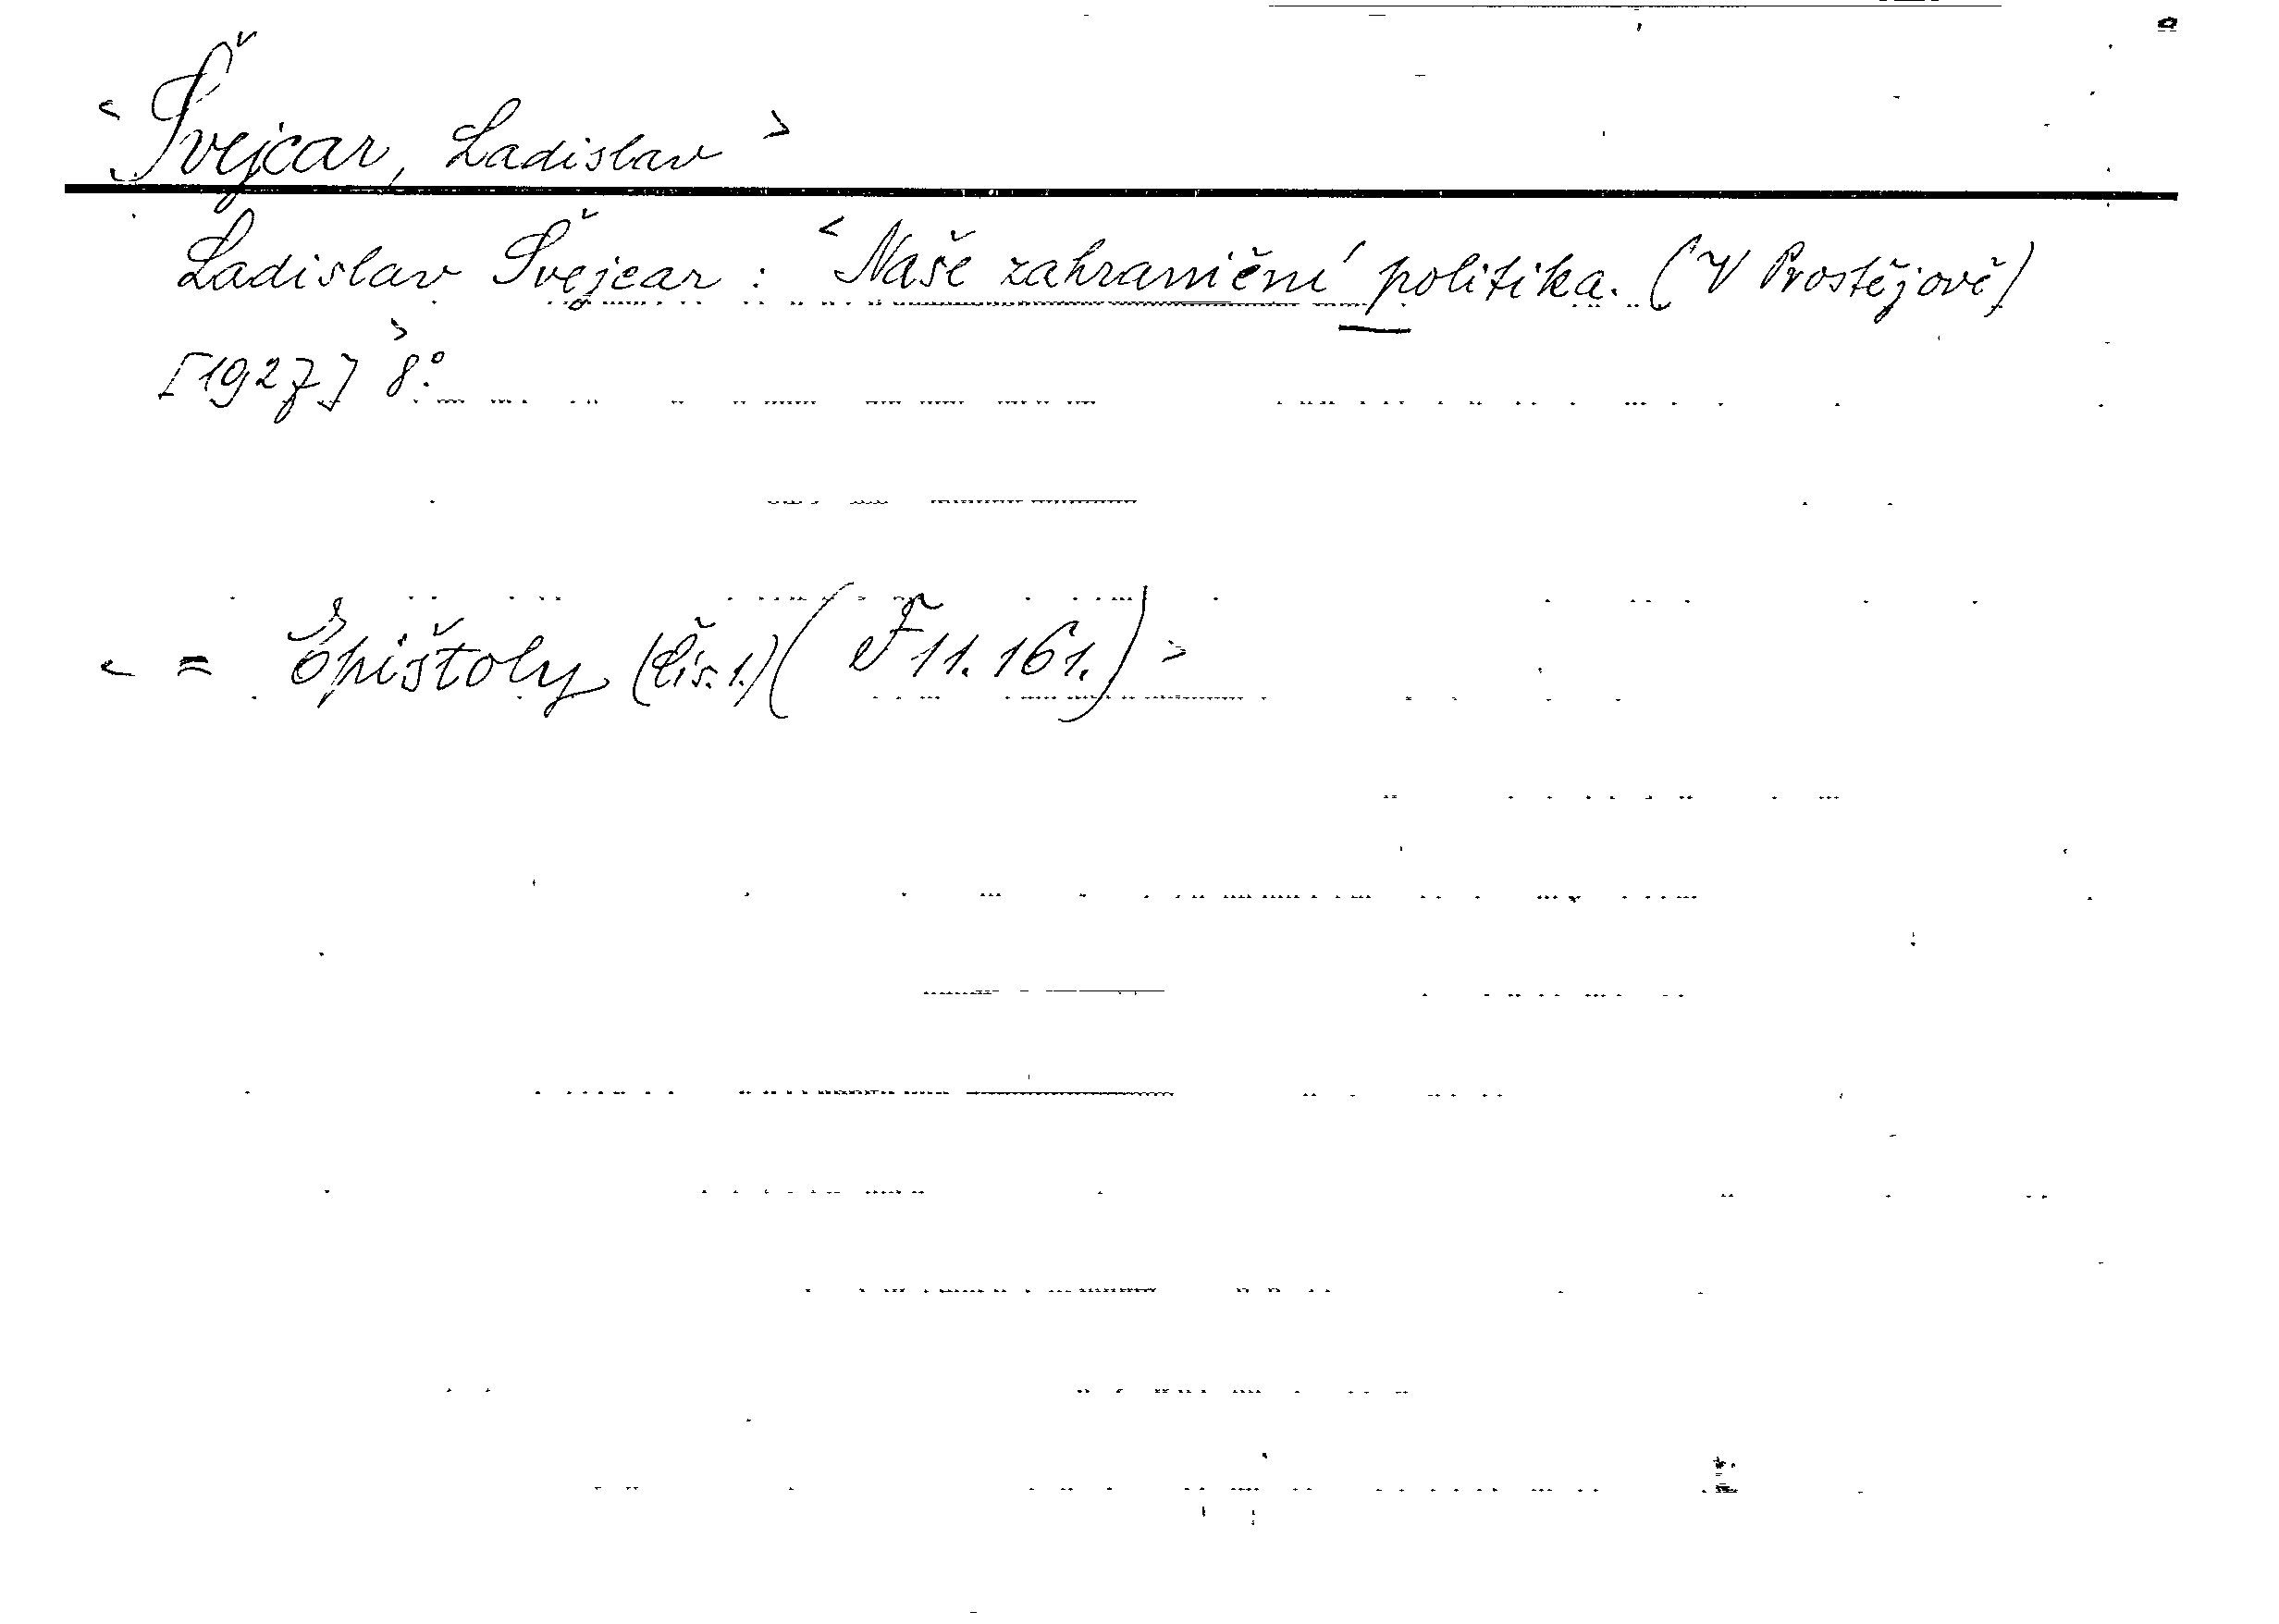 < Švejcar, Ladislav >
Ladislav Švejcar : < Naše zahraniční politika. (V Prostějově)
[1927] > 8°.
< = Epištoly (Čís. 1.) ( F 11. 161. ) >